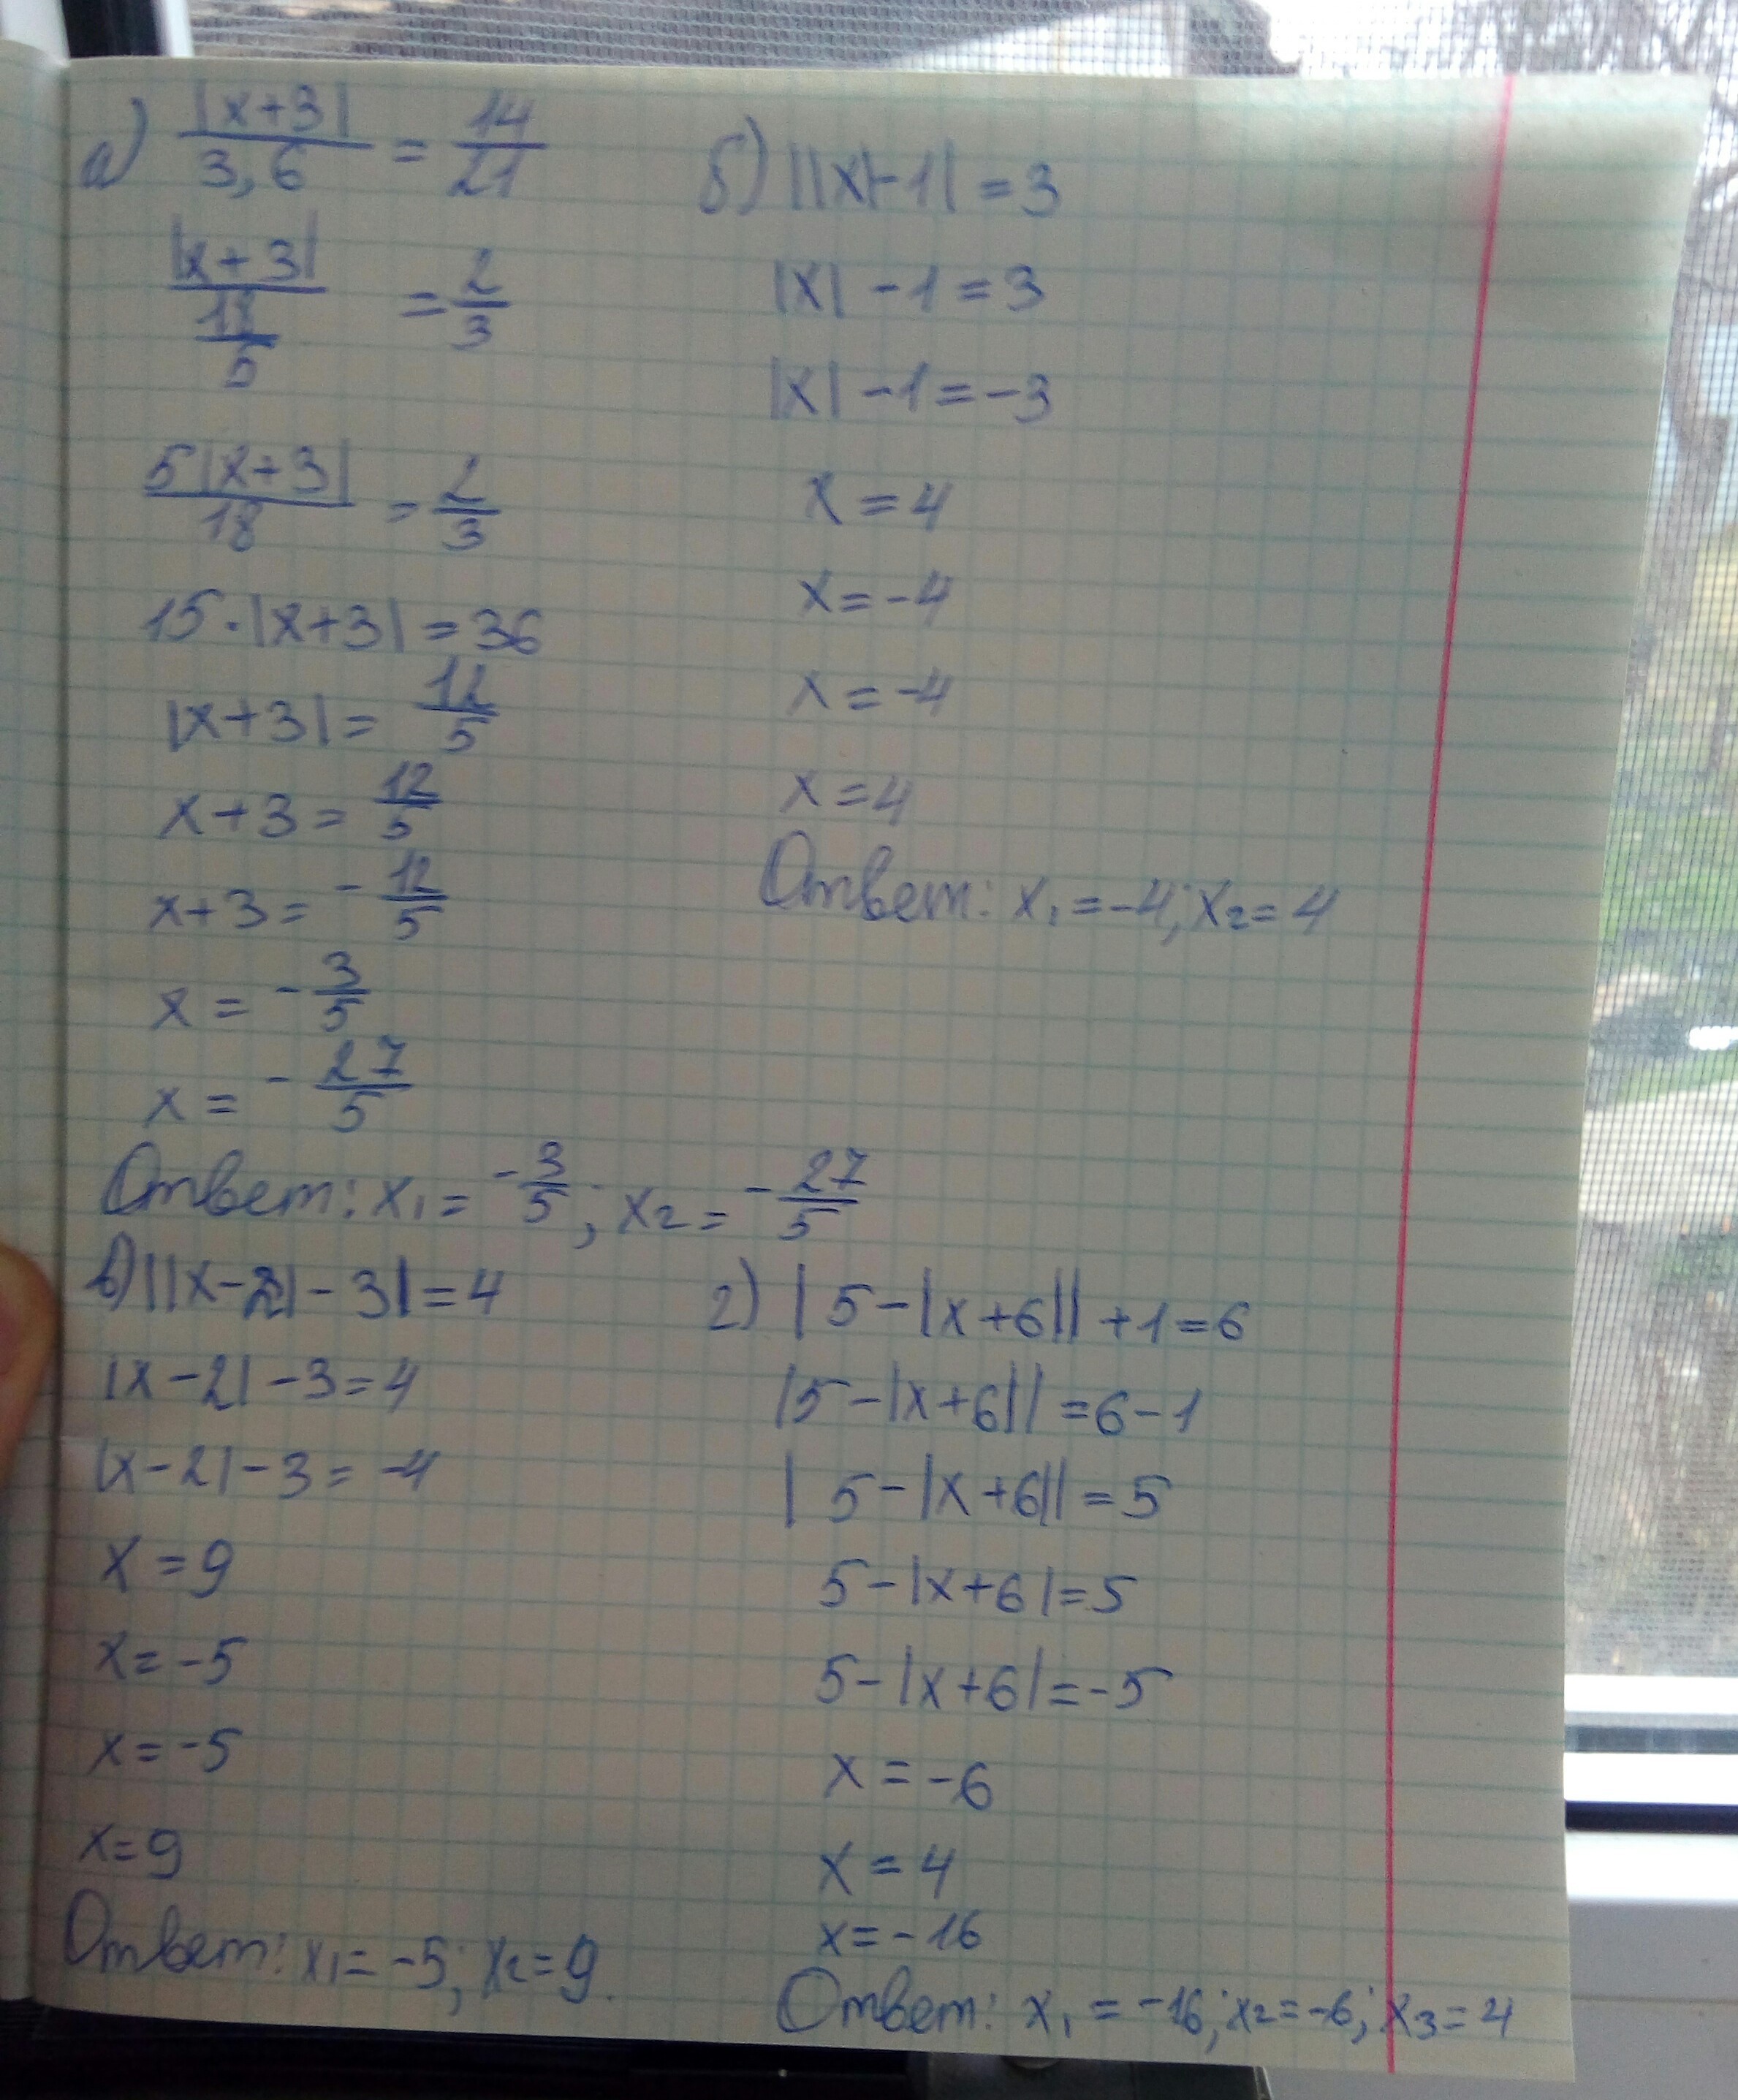 а) |x+3|/3,6 = 14/21
|x+3|/(18/5) = 2/3
5|x+3|/18 = 2/3
15·|x+3|=36
|x+3|= 12/5
x+3= 12/5
x+3= -12/5
x = -3/5
x = -27/5
Ответ: x₁= -3/5; x₂= -27/5
б) ||x|-1|=3
|x|-1=3
|x|-1=-3
x=4
x=-4
x=-4
x=4
Ответ: x₁=-4; x₂=4
в) ||x-2|-3|=4
|x-2|-3=4
|x-2|-3=-4
x=9
x=-5
x=-5
x=9
Ответ: x₁=-5; x₂=9.
г) |5-|x+6||+1=6
|5-|x+6||=6-1
|5-|x+6||=5
5-|x+6|=5
5-|x+6|=-5
x=-6
x=4
x=-16
Ответ: x₁=-16; x₂=-6; x₃=4